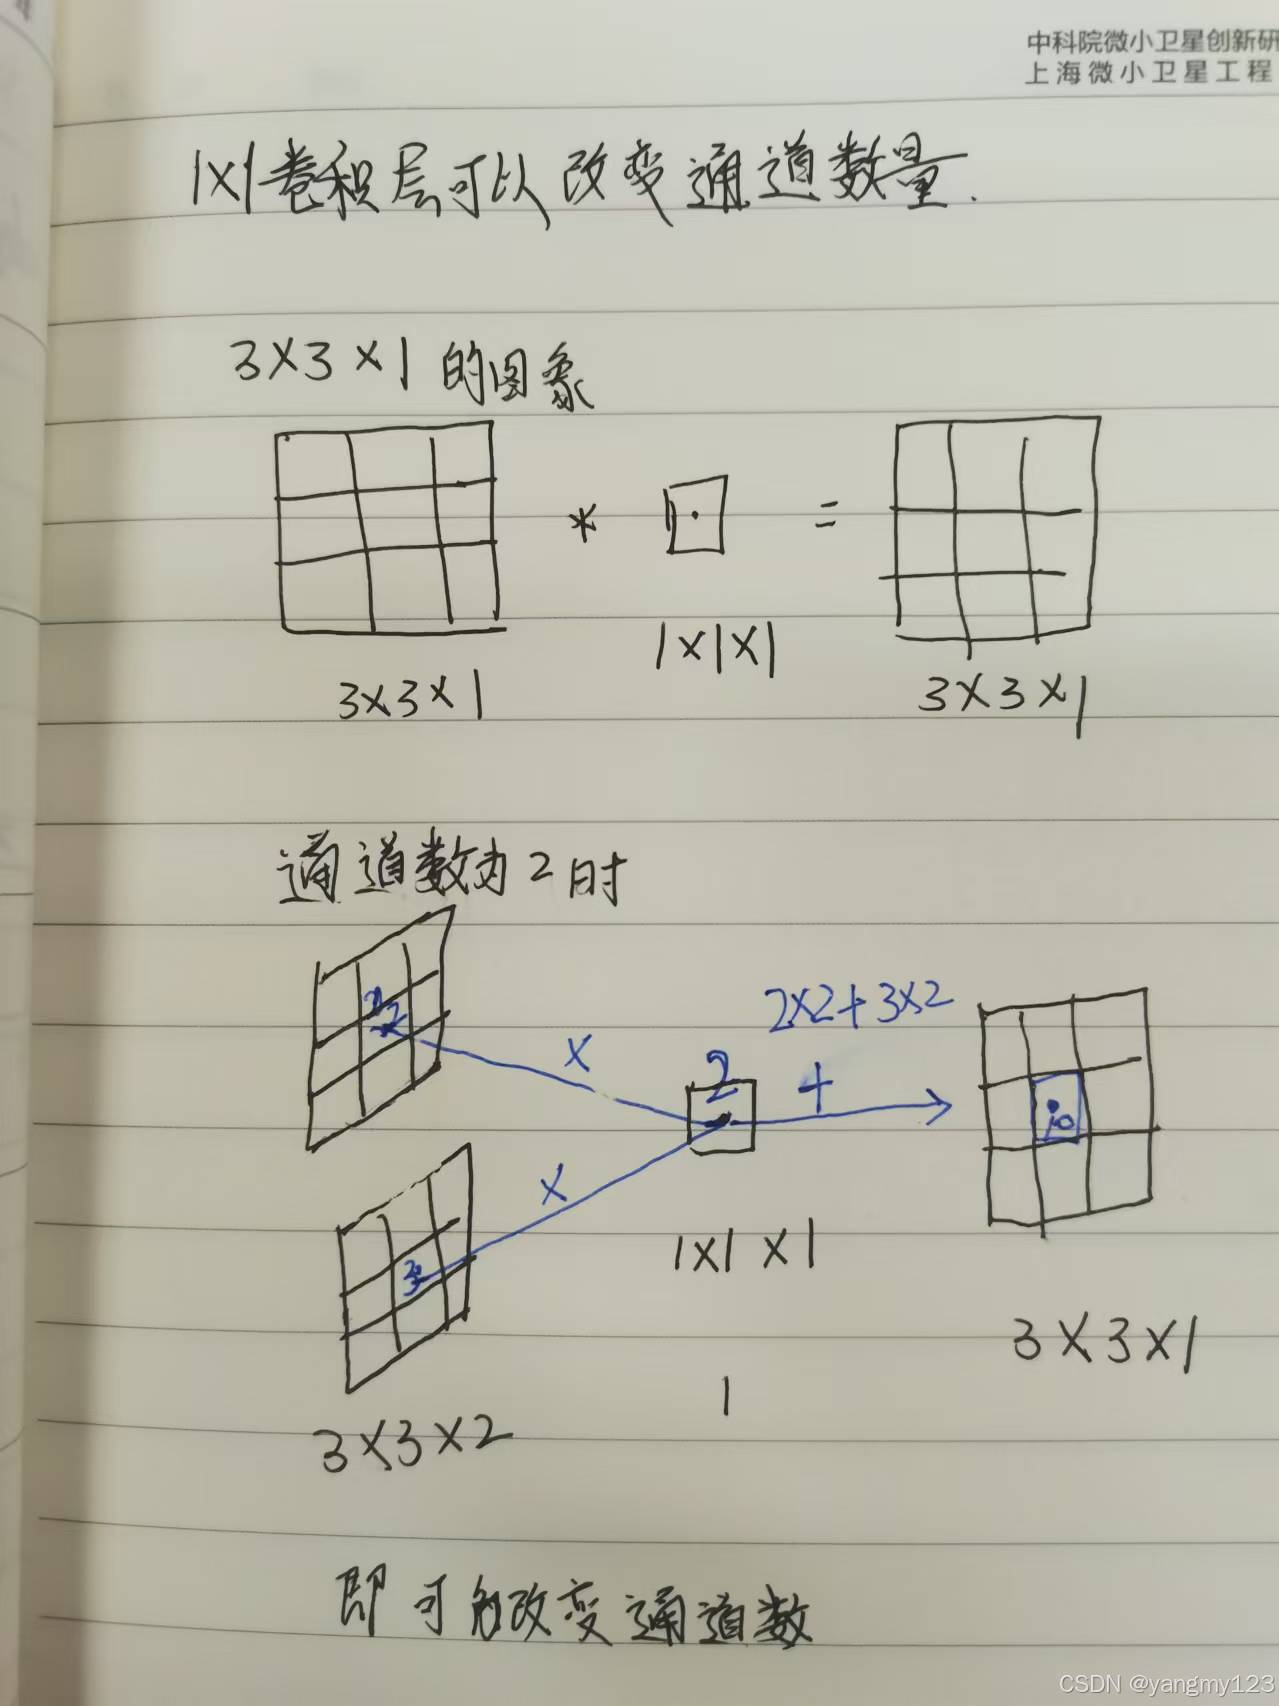 中科院微小卫星创新研
上海微小卫星工程
1×1卷积层可以改变通道数量.
3×3×1的图象
* =
3×3×1 1×1×1 3×3×1
通道数为2时
2 × 2 2×2+3×2
+ 10
3 ×
1×1×1
3×3×1
1
3×3×2
即可改变通道数
CSDN @yangmy123